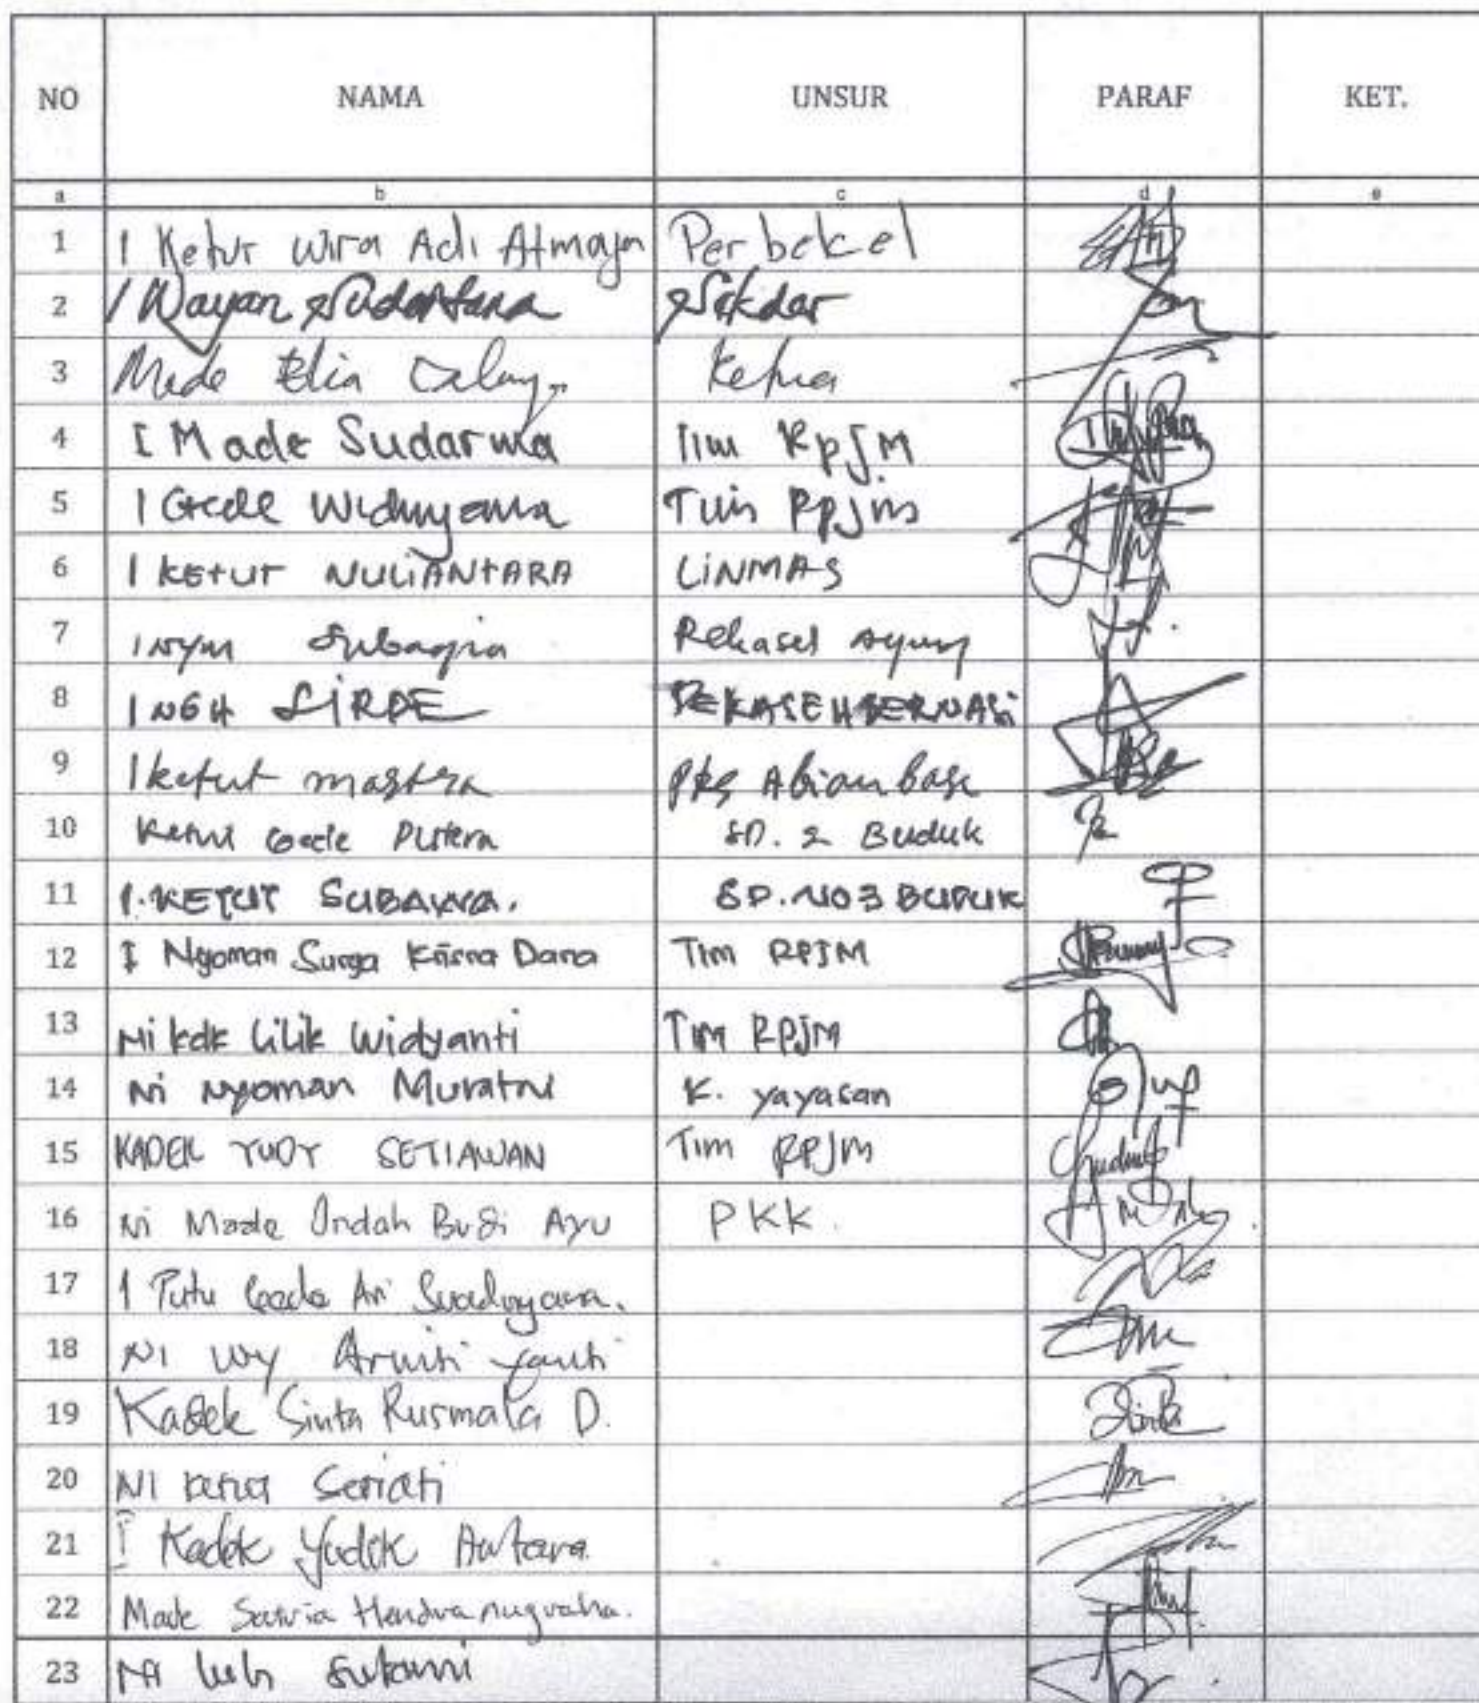 NO NAMA UNSUR PARAF KET.
a b c d e
1 I Ketut Wira Adi Atmaja Perbekel
2 I Wayan Sudartana Sekdes
3 Made Ketua
4 I Made Sudarma Tim RpJM
5 I Gede Widnyana Tim RPJM
6 I KETUT NULIANTARA LINMAS
7 I NYM Subagia Pekaseh Ayung
8 I NGH SIRDE PEKASEH BERNASI
9 I ketut mastra Pks Abianbase
10 Ketut Gede Putera SD. 2 Buduk
11 I. KETUT SUBAWA. SD. NO 3 BUDUK
12 I Nyoman Surga Krisna Dana Tim RPJM
13 Ni kdk Lilik Widyanti TIM RPJM
14 Ni Nyoman Muratni K. yayasan
15 KADEK YUDY SETIAWAN Tim RPJM
16 Ni Made Indah Budi Ayu PKK.
17 I Putu Gede Ari
18 Ni Wy yanti
19 Kadek Sinta Rusmala D.
20 NI Ketut Seriati
21 I Kadek Yudik Antara
22 Made Satria Hendra nugraha.
23 Ni luh sukarni